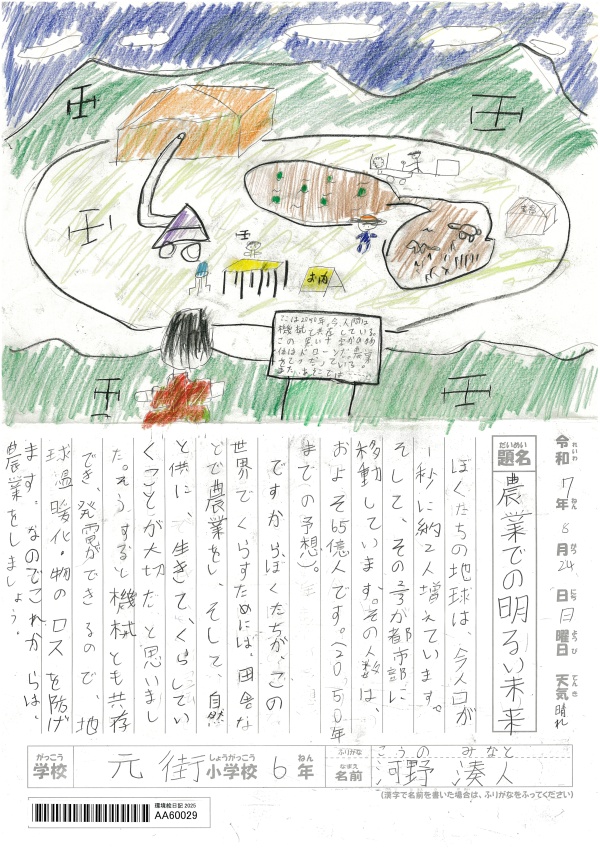 お肉
ここは2050年。今、人間は
機械と共存している。
この黒い十字がの物
体はドローンだ。農業
をてつだっている。
令和7年8月24日日曜日 天気 晴れ
れいわ ねん がつ にち ようび てんき
だいめい
題名
農業での明るい未来
ぼくたちの地球は、今人口が
一秒に納2人増えています。
そして、その2/3が都市部に
移動しています。その人数は、
およそ65億人です。(20.50年
までの予想)。
ですから、ぼくたちが、この
世界でくらすためには、田舎な
どで農業をし、そして、自然
と供に、生きて、くらしてい
くことが大切だと思いまし
た。そうすると機械とも共存
でき、発電ができるので、地
球温暖化・物のロスを防げ
ます。なのでこれからは、
農業をしましょう。
がっこう しょうがっこう ねん
学校 元街小学校 6年
ふりがな こうの みなと
なまえ
名前 河野 湊人
(漢字で名前を書いた場合は、ふりがなをふってください)
環境絵日記 2025
AA60029